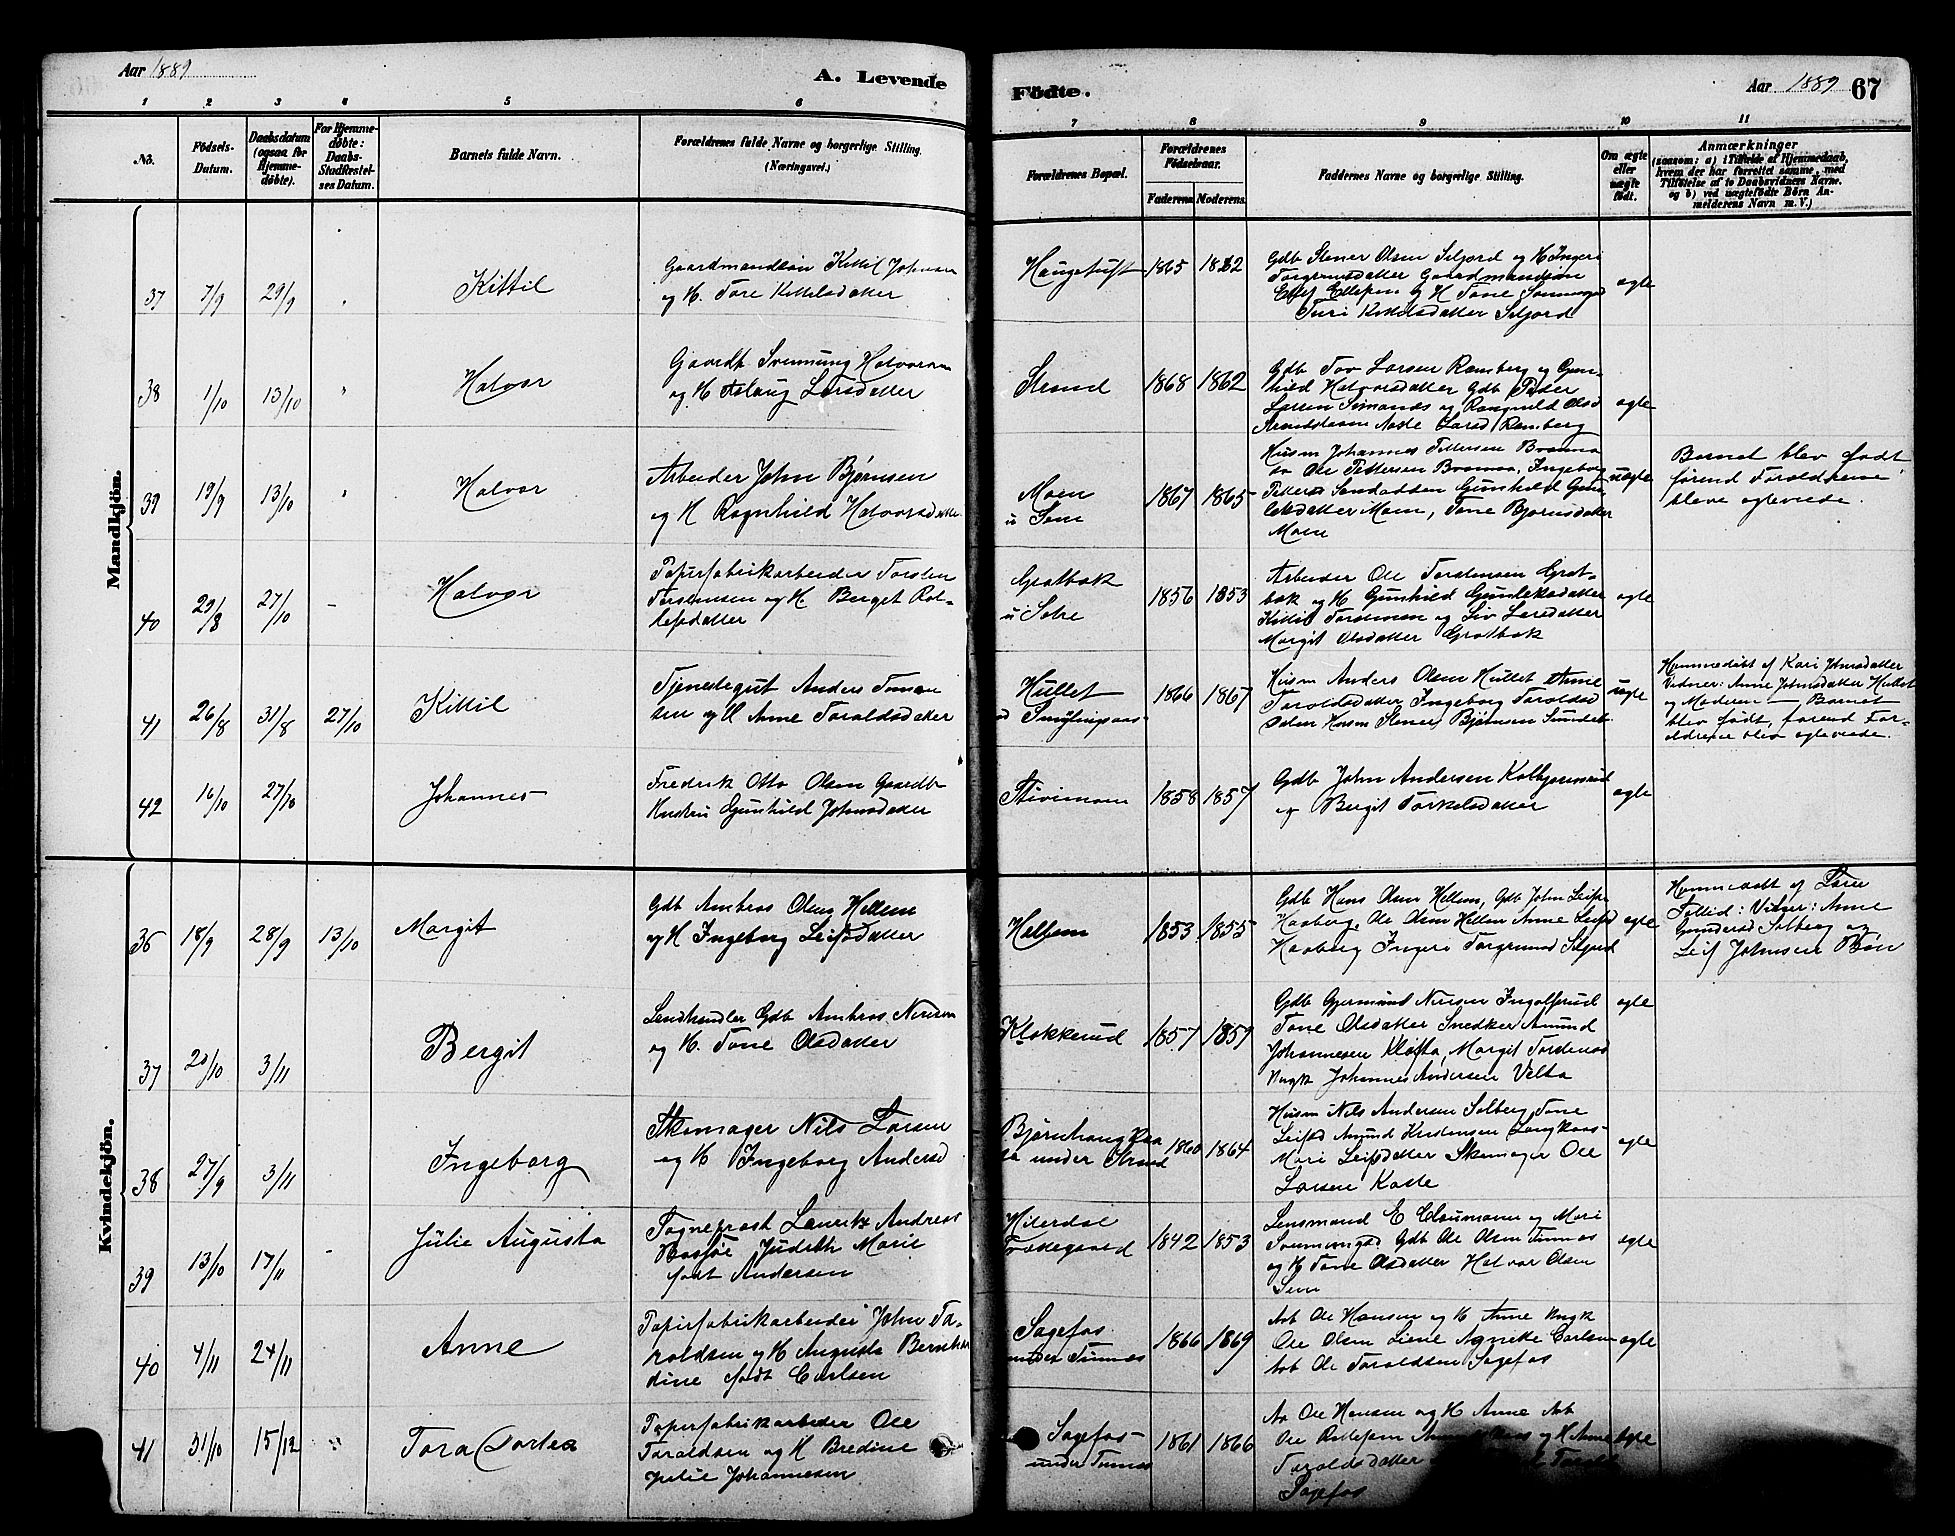 Aar 1889
A. Levende
Födte.
Aar 1889 67
1 2 3 4 5 6 7 8 9 10 11
No.
Födsels-
Datum.
Daabsdatum
(ogsaa for
Hjemme-
døbte).
For Hjemme-
døbte:
Daabs-
Stadfæstel-
ses Datum.
Barnets fulde Navn.
Forældrenes fulde Navne og borgerlige Stilling.
(Næringsvei.)
Forældrenes Bopæl.
Forældrenes
Födselsaar.
Faderens Moderens
Faddernes Navne og borgerlige Stilling.
Om ægte
eller
uægte
födt.
Anmærkninger
(saasom: a) i Tilfælde af Hjemmedaab,
hvem der har forrettet samme, med
Tilføielse af to Daabsvidners Navne.
og b) ved uægtefødte Børn An-
melderens Navn m. V.)
Mandkjön.
37 7/9 29/9 " Kittil
Gaardmandsøn Kittil Johnsen
og H. Tore Kittelsdatter
Haugetuft 1865
Gdb Stener Olsen Seljord og H Ingeri
Torgrimsdatter Gaardmandsøn
og H Tone
Turi Kittelsdatter Seljord
ægte
38 1/10 13/10 " Halvor
Gaardb Svenung Halvorsen
og H Aslaug Larsdatter
Strand 1868 1862
Gdb Tov Larsen Ramberg og Gun-
hild Halvorsdatter Gdb Peder
Larsen Semands og Rangnild Olsd
Aaste Larsd Ramberg
ægte
39 19/9 13/10 " Halvor
Arbeider John Bjørnsen
og H Ragnhild Halvorsdatter
Moen
u Sem
1867 1865
Husm Johannes Pettersen
Ole Pettersen Ingeborg
Gunhild
Moen, Tone Bjørnsdatter
Moen
uægte
Barnet blev født
førend Forældrene
bleve ægteviede.
40 29/8 27/10 - Halvor
Papirfabrikarbeider Torsten
Torstensen og H. Berget Rol-
lefsdatter
Grotbæk
u
1856 1853
Arbeider Ole Torstensen Grot-
bæk og H Gunhild Gunleksdatter
Kittil Torstensen og Liv Larsdatter
Margit Olsdatter Grotbæk
ægte
41 26/8 31/8 27/10 Kittil
Tjenestegut Anders
sen og H Anne Taraldsdatter
Hullet
1866 1867
Husm Anders Olsen Hullet Anne
Taraldsdatter, Ingeborg Taraldsd
Husm Stener Bjørnsen
uægte
Hjemmedøbt af Kari Johnsdatter
Vidner: Anne Johnsdatter Hullet
og Moderen Barnet
blev født, førend For-
ældrene blev ægteviede.
42 16/10 27/10 Johannes
Frederik Otto Olsen Gaardb
Hustru Gunhild Johnsdatter
Stivimoen 1858 1857
Gdb John Andersen Kolbjørnrud
og Bergit Torkelsdatter
ægte
Kvindekjön.
36 18/9 28/9 13/10 Margit
Gdb Ambros Olsen Hellem
og H Ingeborg Leifsdatter
Hellem 1853 1855
Gdb Hans Olsen Hellem, Gdb John Leifs
Haaberg, Ole Olsen Hellem Anne Leifsd
Haaberg Ingeri Torgrimsd Seljord
ægte
Hjemmedøbt af
Vidner: Anne
Gundersd Solberg og
Leif Johnsen Bøn
37 20/10 3/11 Bergit
Landhandler Gdb Ambros Nirisen
og H. Tone Olsdatter
Klokkerud 1857 1859
Gdb Gjermund Nirisen Ingolfsrud
Tone Olsdatter Snedker Amund
Johannesen Kløfta, Margit Tordensd
Ungk Johannes Andersen Velta
ægte
38 27/9 3/11 Ingeborg
Skomager Nils Larsen
og H Ingeborg Andersd
Bjørnhaug
under Strand
1860 1864
Husm Nils Andersen Solberg Tone
Leifsd Amund Kristensen
Mari Leifsdatter Skomager Ole
Larsen Kaste
ægte
39 13/10 17/11 - Julie Augusta
Sogneprest Lauritz Andreas
Judith Marie
født Andersen
Hiterdal
Præstegaard
1842 1853
Lensmand E Claumann og Mari
Gdb Ole Olsen Tinnes
og H Tone Olsdatter Halvor Olsen
Sem
ægte
40 4/11 24/11 Anne
Papirfabrikarbeider John Ta-
raldsen og H Augusta Bernhar
dine født Carlsen
Sagefos
under Tinnes
1866 1869
Arb Ole Hansen og H Anne Ungk
Ole Olsen Agnethe Carlsen
Arb Ole Taraldsen Sagefos
ægte
41 31/10 15/12 " Tora Dortea
Papirfabrikarbeider Ole
Taraldsen og H Bredine
Julie Johannesen
Sagefos
under Tinnes
1861 1866
Ole Hansen og H Anne Arb
Ole og H Anne
Taraldsdatter
Sagefos
ægte